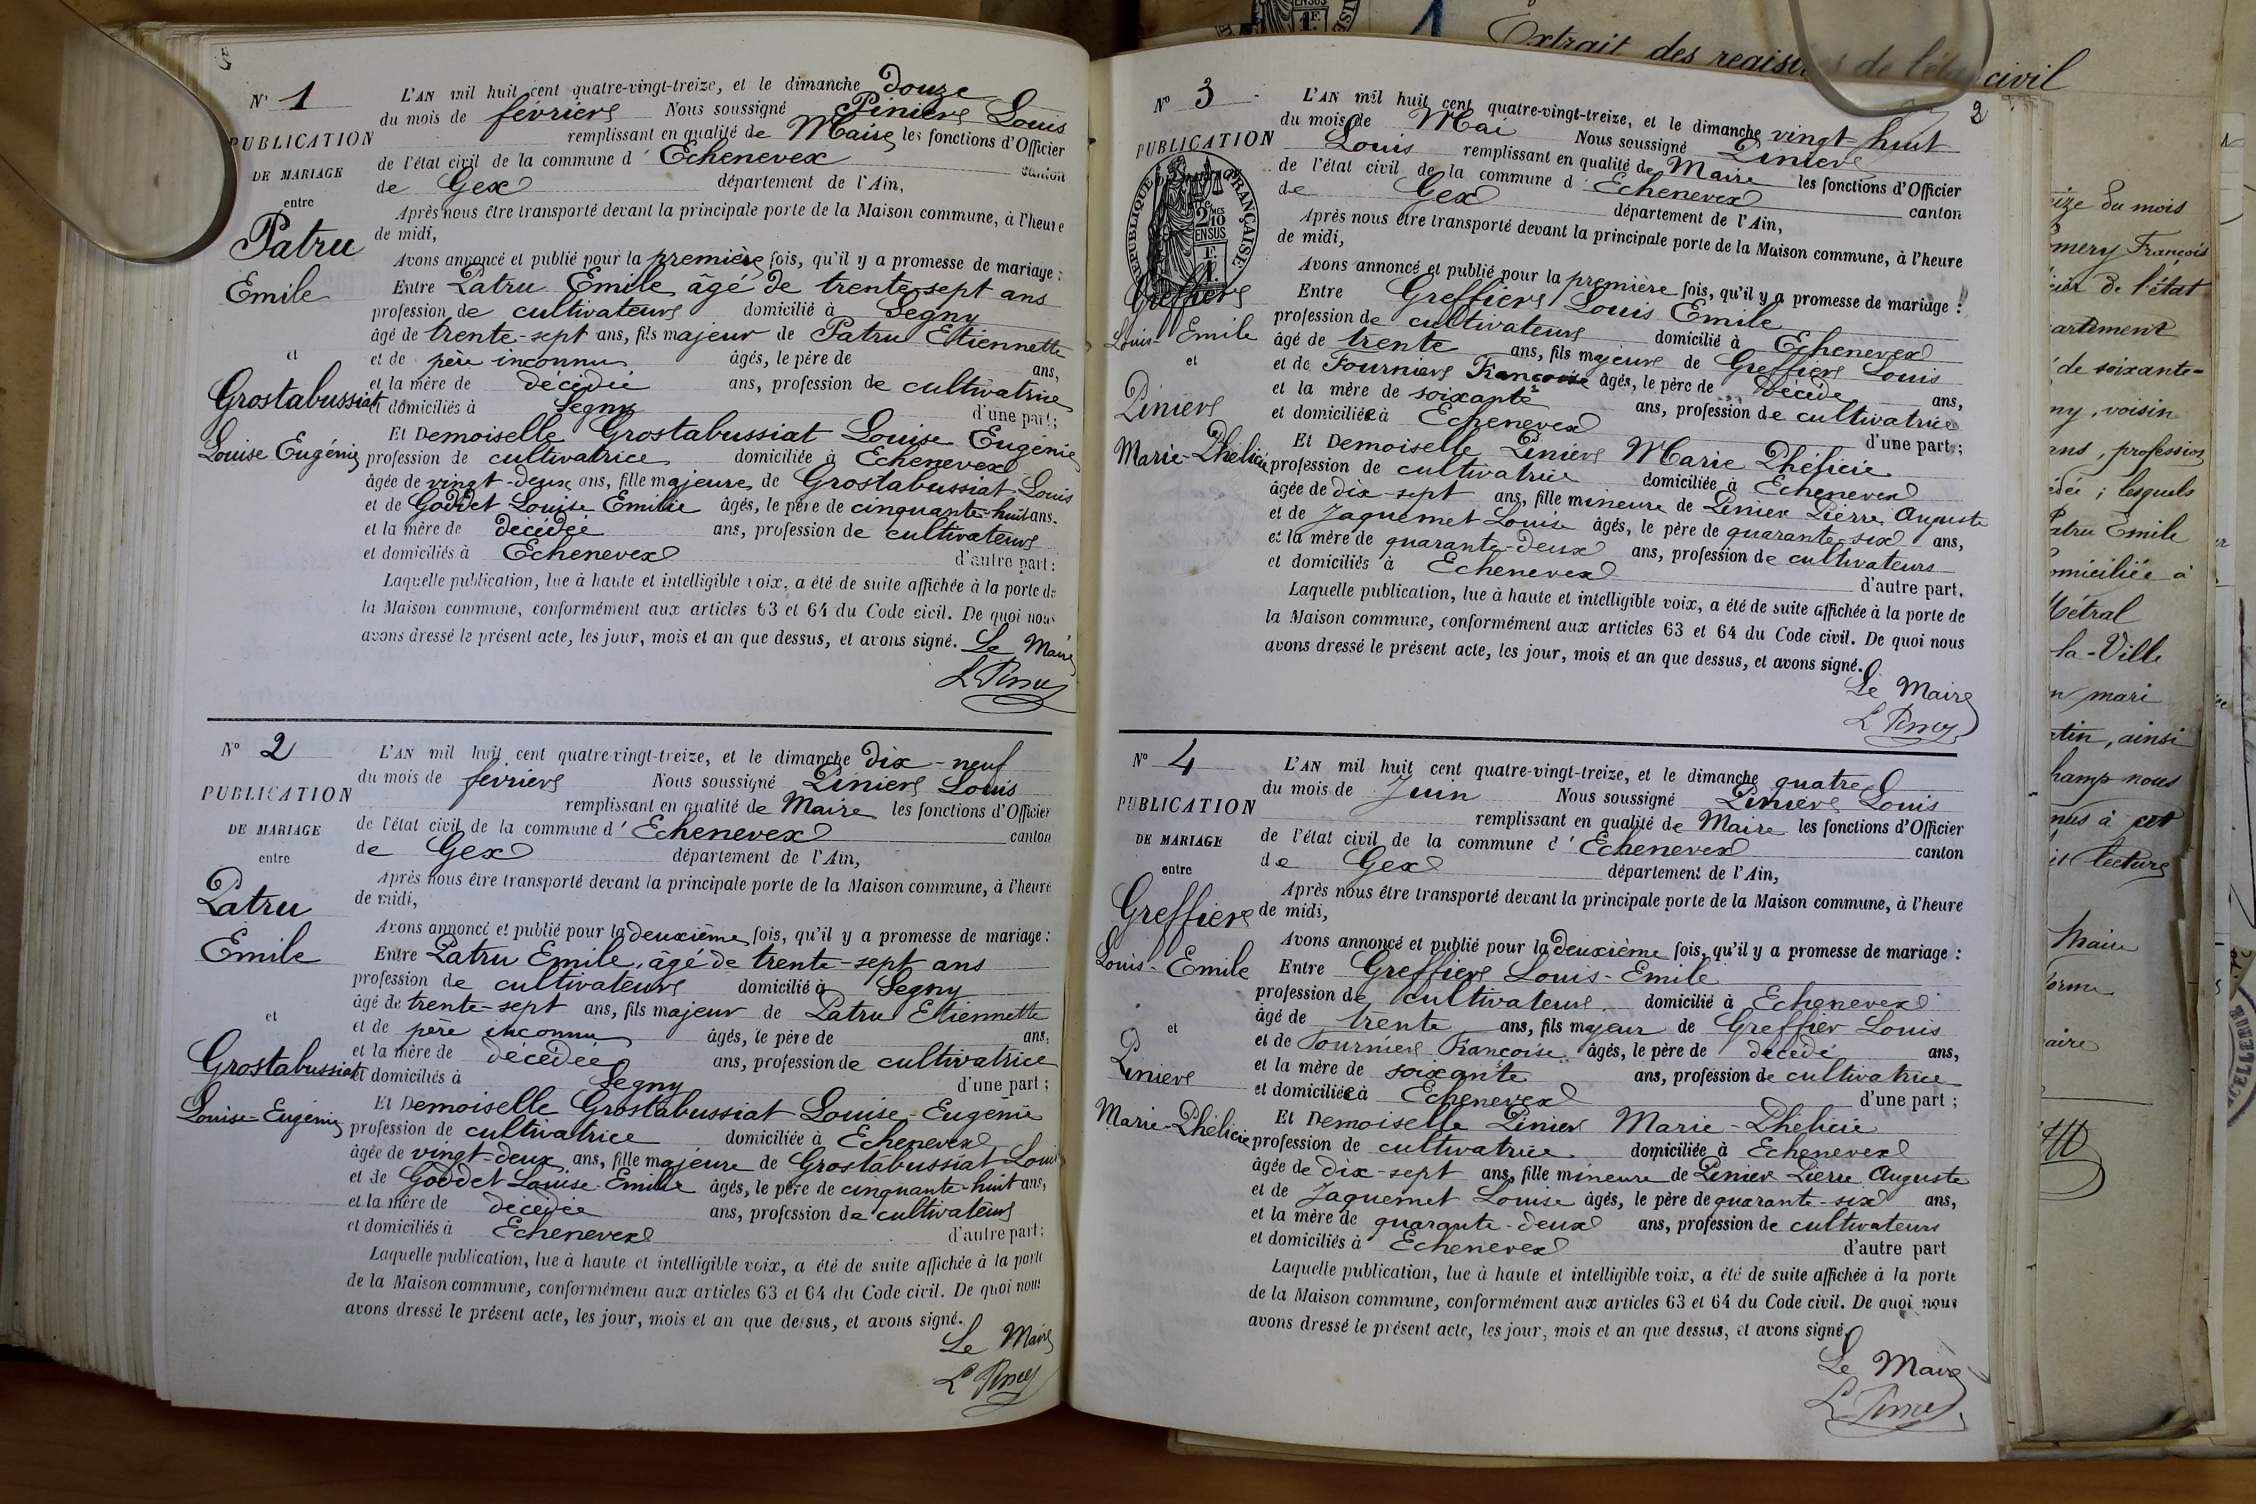 N° 1
PUBLICATION
DE MARIAGE
entre
Patru
Emile
et
Grostabussiat
Louise Eugénie
L'AN mil huit cent quatre-vingt-treize, et le dimanche douze
du mois de février Nous soussigné Pinier Louis
remplissant en qualité de Maire les fonctions d'Officier
de l'état civil de la commune d'Echenevex canton
de Gex département de l'Ain,
Après nous être transporté devant la principale porte de la Maison commune, à l'heure
de midi,
Avons annoncé et publié pour la première fois, qu'il y a promesse de mariage :
Entre Patru Emile âgé de trente-sept ans
profession de cultivateur domicilié à Segny
âgé de trente-sept ans, fils majeur de Patru Etiennette
et de père inconnu âgés, le père de ans,
et la mère de décédée ans, profession de cultivatrice
et domiciliés à Segny d'une part ;
Et Demoiselle Grostabussiat Louise Eugénie
profession de cultivatrice domiciliée à Echenevex
âgée de vingt-deux ans, fille majeure de Grostabussiat Louis
et de Goddet Louise Emilie âgés, le père de cinquante-huit ans,
et la mère de décédée ans, profession de cultivateur
et domiciliés à Echenevex d'autre part :
Laquelle publication, lue à haute et intelligible voix, a été de suite affichée à la porte de
la Maison commune, conformément aux articles 63 et 64 du Code civil. De quoi nous
avons dressé le présent acte, les jour, mois et an que dessus, et avons signé. Le Maire
N° 2
PUBLICATION
DE MARIAGE
entre
Patru
Emile
et
Grostabussiat
Louise-Eugénie
L'AN mil huit cent quatre-vingt-treize, et le dimanche dix-neuf
du mois de février Nous soussigné Pinier Louis
remplissant en qualité de Maire les fonctions d'Officier
de l'état civil de la commune d'Echenevex canton
de Gex département de l'Ain,
Après nous être transporté devant la principale porte de la Maison commune, à l'heure
de midi,
Avons annoncé et publié pour la deuxième fois, qu'il y a promesse de mariage :
Entre Patru Emile, âgé de trente-sept ans
profession de cultivateur domicilié à Segny
âgé de trente-sept ans, fils majeur de Patru Etiennette
et de père inconnu âgés, le père de ans,
et la mère de décédée ans, profession de cultivatrice
et domiciliés à Segny d'une part ;
Et Demoiselle Grostabussiat Louise-Eugénie
profession de cultivatrice domiciliée à Echenevex
âgée de vingt-deux ans, fille majeure de Grostabussiat Louis
et de Goddet Louise-Emilie âgés, le père de cinquante-huit ans,
et la mère de décédée ans, profession de cultivateur
et domiciliés à Echenevex d'autre part ;
Laquelle publication, lue à haute et intelligible voix, a été de suite affichée à la porte
de la Maison commune, conformément aux articles 63 et 64 du Code civil. De quoi nous
avons dressé le présent acte, les jour, mois et an que dessus, et avons signé.
Le Maire
2
N° 3
PUBLICATION
RÉPUBLIQUE FRANÇAISE
Greffier
Louis-Emile
et
Pinier
Marie-Phélicie
L'AN mil huit cent quatre-vingt-treize, et le dimanche vingt-huit
du mois de Mai Nous soussigné Pinier
Louis remplissant en qualité de Maire les fonctions d'Officier
de l'état civil de la commune d'Echenevex canton
de Gex département de l'Ain,
Après nous être transporté devant la principale porte de la Maison commune, à l'heure
de midi,
Avons annoncé et publié pour la première fois, qu'il y a promesse de mariage :
Entre Greffier Louis Emile
profession de cultivateur domicilié à Echenevex
âgé de trente ans, fils majeur de Greffier Louis
et de Fournier Françoise âgés, le père de décédé ans,
et la mère de soixante ans, profession de cultivatrice
et domiciliée à Echenevex d'une part ;
Et Demoiselle Pinier Marie Phélicie
profession de cultivatrice domiciliée à Echenevex
âgée de dix-sept ans, fille mineure de Pinier Pierre Auguste
et de Jaquemet Louise âgés, le père de quarante-six ans,
et la mère de quarante-deux ans, profession de cultivateurs
et domiciliés à Echenevex d'autre part.
Laquelle publication, lue à haute et intelligible voix, a été de suite affichée à la porte de
la Maison commune, conformément aux articles 63 et 64 du Code civil. De quoi nous
avons dressé le présent acte, les jour, mois et an que dessus, et avons signé.
Le Maire
N° 4
PUBLICATION
DE MARIAGE
entre
Greffier
Louis-Emile
et
Pinier
Marie-Phélicie
L'AN mil huit cent quatre-vingt-treize, et le dimanche quatre
du mois de Juin Nous soussigné Pinier Louis
remplissant en qualité de Maire les fonctions d'Officier
de l'état civil de la commune d'Echenevex canton
de Gex département de l'Ain,
Après nous être transporté devant la principale porte de la Maison commune, à l'heure
de midi,
Avons annoncé et publié pour la deuxième fois, qu'il y a promesse de mariage :
Entre Greffier Louis-Emile
profession de cultivateur domicilié à Echenevex
âgé de trente ans, fils majeur de Greffier Louis
et de Fournier Françoise âgés, le père de décédé ans,
et la mère de soixante ans, profession de cultivatrice
et domiciliée à Echenevex d'une part ;
Et Demoiselle Pinier Marie-Phélicie
profession de cultivatrice domiciliée à Echenevex
âgée de dix-sept ans, fille mineure de Pinier Pierre Auguste
et de Jaquemet Louise âgés, le père de quarante-six ans,
et la mère de quarante-deux ans, profession de cultivateurs
et domiciliés à Echenevex d'autre part
Laquelle publication, lue à haute et intelligible voix, a été de suite affichée à la porte
de la Maison commune, conformément aux articles 63 et 64 du Code civil. De quoi nous
avons dressé le présent acte, les jour, mois et an que dessus, et avons signé.
Le Maire
Extrait des registres de l'état civil
du mois
François
de l'état
de soixante-
voisin
profession
lesquels
Patru Emile
domiciliée à
Métral
la-Ville
mari
ainsi
nous
à cet
lecture
Maire